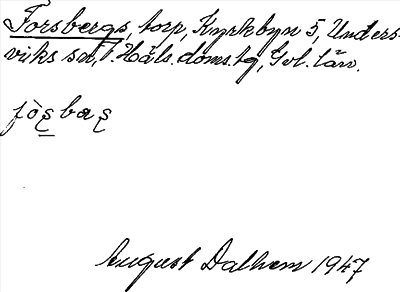 Forsbergs, torp, Kyrkbyn 5, Unders-
viks sn, V. Häls. doms.tg, Gvl. län.
fɷ̀s̨bas̨
August Dalhem 1947